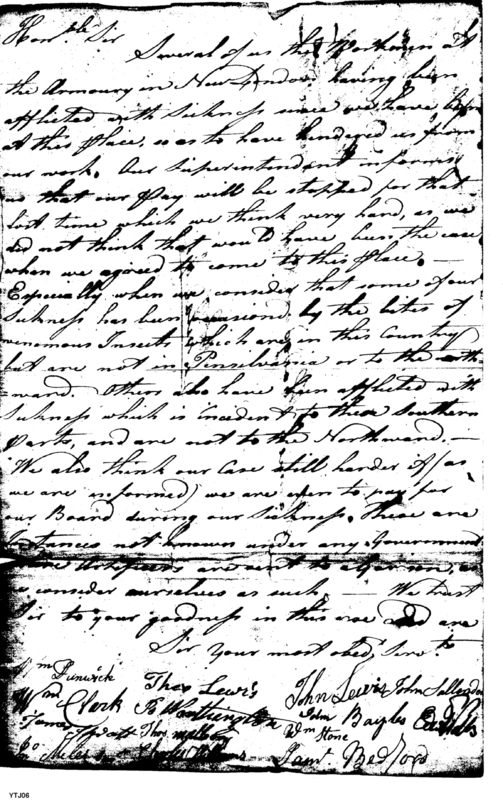 Hon.ble Sir
Several of us the Workmen at
the Armoury in New London having been
afflicted with Sickness since we have been
at this place, so as to have hindered us from
our work. Our Superintendent informs
us that our Pay will be stopped for that
lost time which we think very hard, as we
did not think that would have been the case
when we agreed to come to this place. —
Especially when we consider that some of our
Sickness has been occasioned by the bites of
venomous Insects which are in this Country
but are not in Pensilvania or to the north
ward. Others also have been afflicted with
Sickness which is incident to these Southern
parts, and are not to the Northward. —
We also think our Case still harder if (as
we are informed) we are to pay for
our Board during our Sickness. These are
Instances not known under any Government
where Artificers are sent to a Garrison, as
we consider ourselves as such, — We trust
Sir to your goodness in this and are
Sir your most obed. Serv.ts
Wm
Clerk Thos Lewis John Lewis John
James Worthington John Bayles
Pratt Thos Wm Stone
Jo Miles Charles Williams Saml Bedford
YTJ06